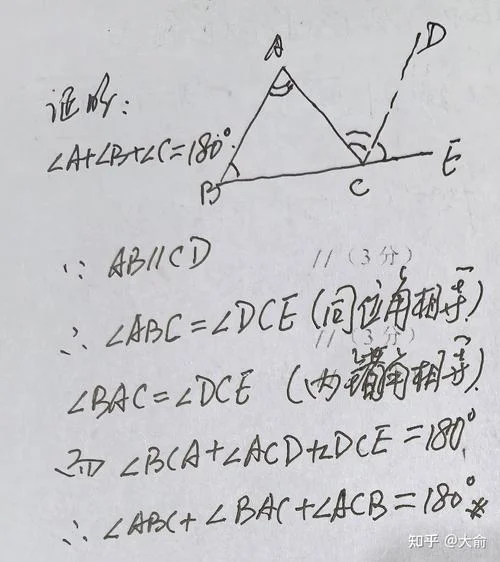 A
D
证明:
∠A+∠B+∠C=180°.
B
C
E
∵ AB//CD
//(3分)
∴ ∠ABC=∠DCE(同位角相等)
//(3分)
∠BAC=∠DCE (内错角相等)
而 ∠BCA+∠ACD+∠DCE=180°.
∴ ∠ABC+∠BAC+∠ACB=180°※
知乎 @大俞